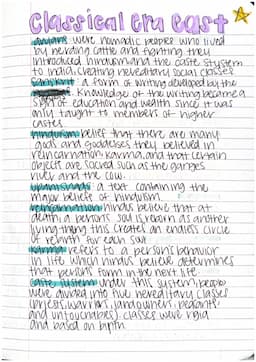 Classical Era east
aryans were nomadic people who lived
by herding cattle and fighting they
introduced hinduism and the caste stystem
to india, creating hereditary social classes
sanskrit a form of writing developed by the
Knowledge of the writing became a
sign of education and wealth since it was
only taught to members of higher
castes
hinduism belief that there are many
gods and goddesses they believed in
reincarnation karma, and that certain
objects are sacred such as the ganges
river and the cow.
upanishads a text containing the
major beliefs of hinduism
reincarnation hindus believe that at
death a persons soul is reborn as another
living thing this creates an endless circle
of rebirth for each soul
karma refers to a person's behavior
in life which hindus believe determines
that persons form in the next life
caste system under this system, people
were divided into five hereditary classes
(priests, warriors, landowners, peasants
and untouchables). classes were rigid
and based on birth